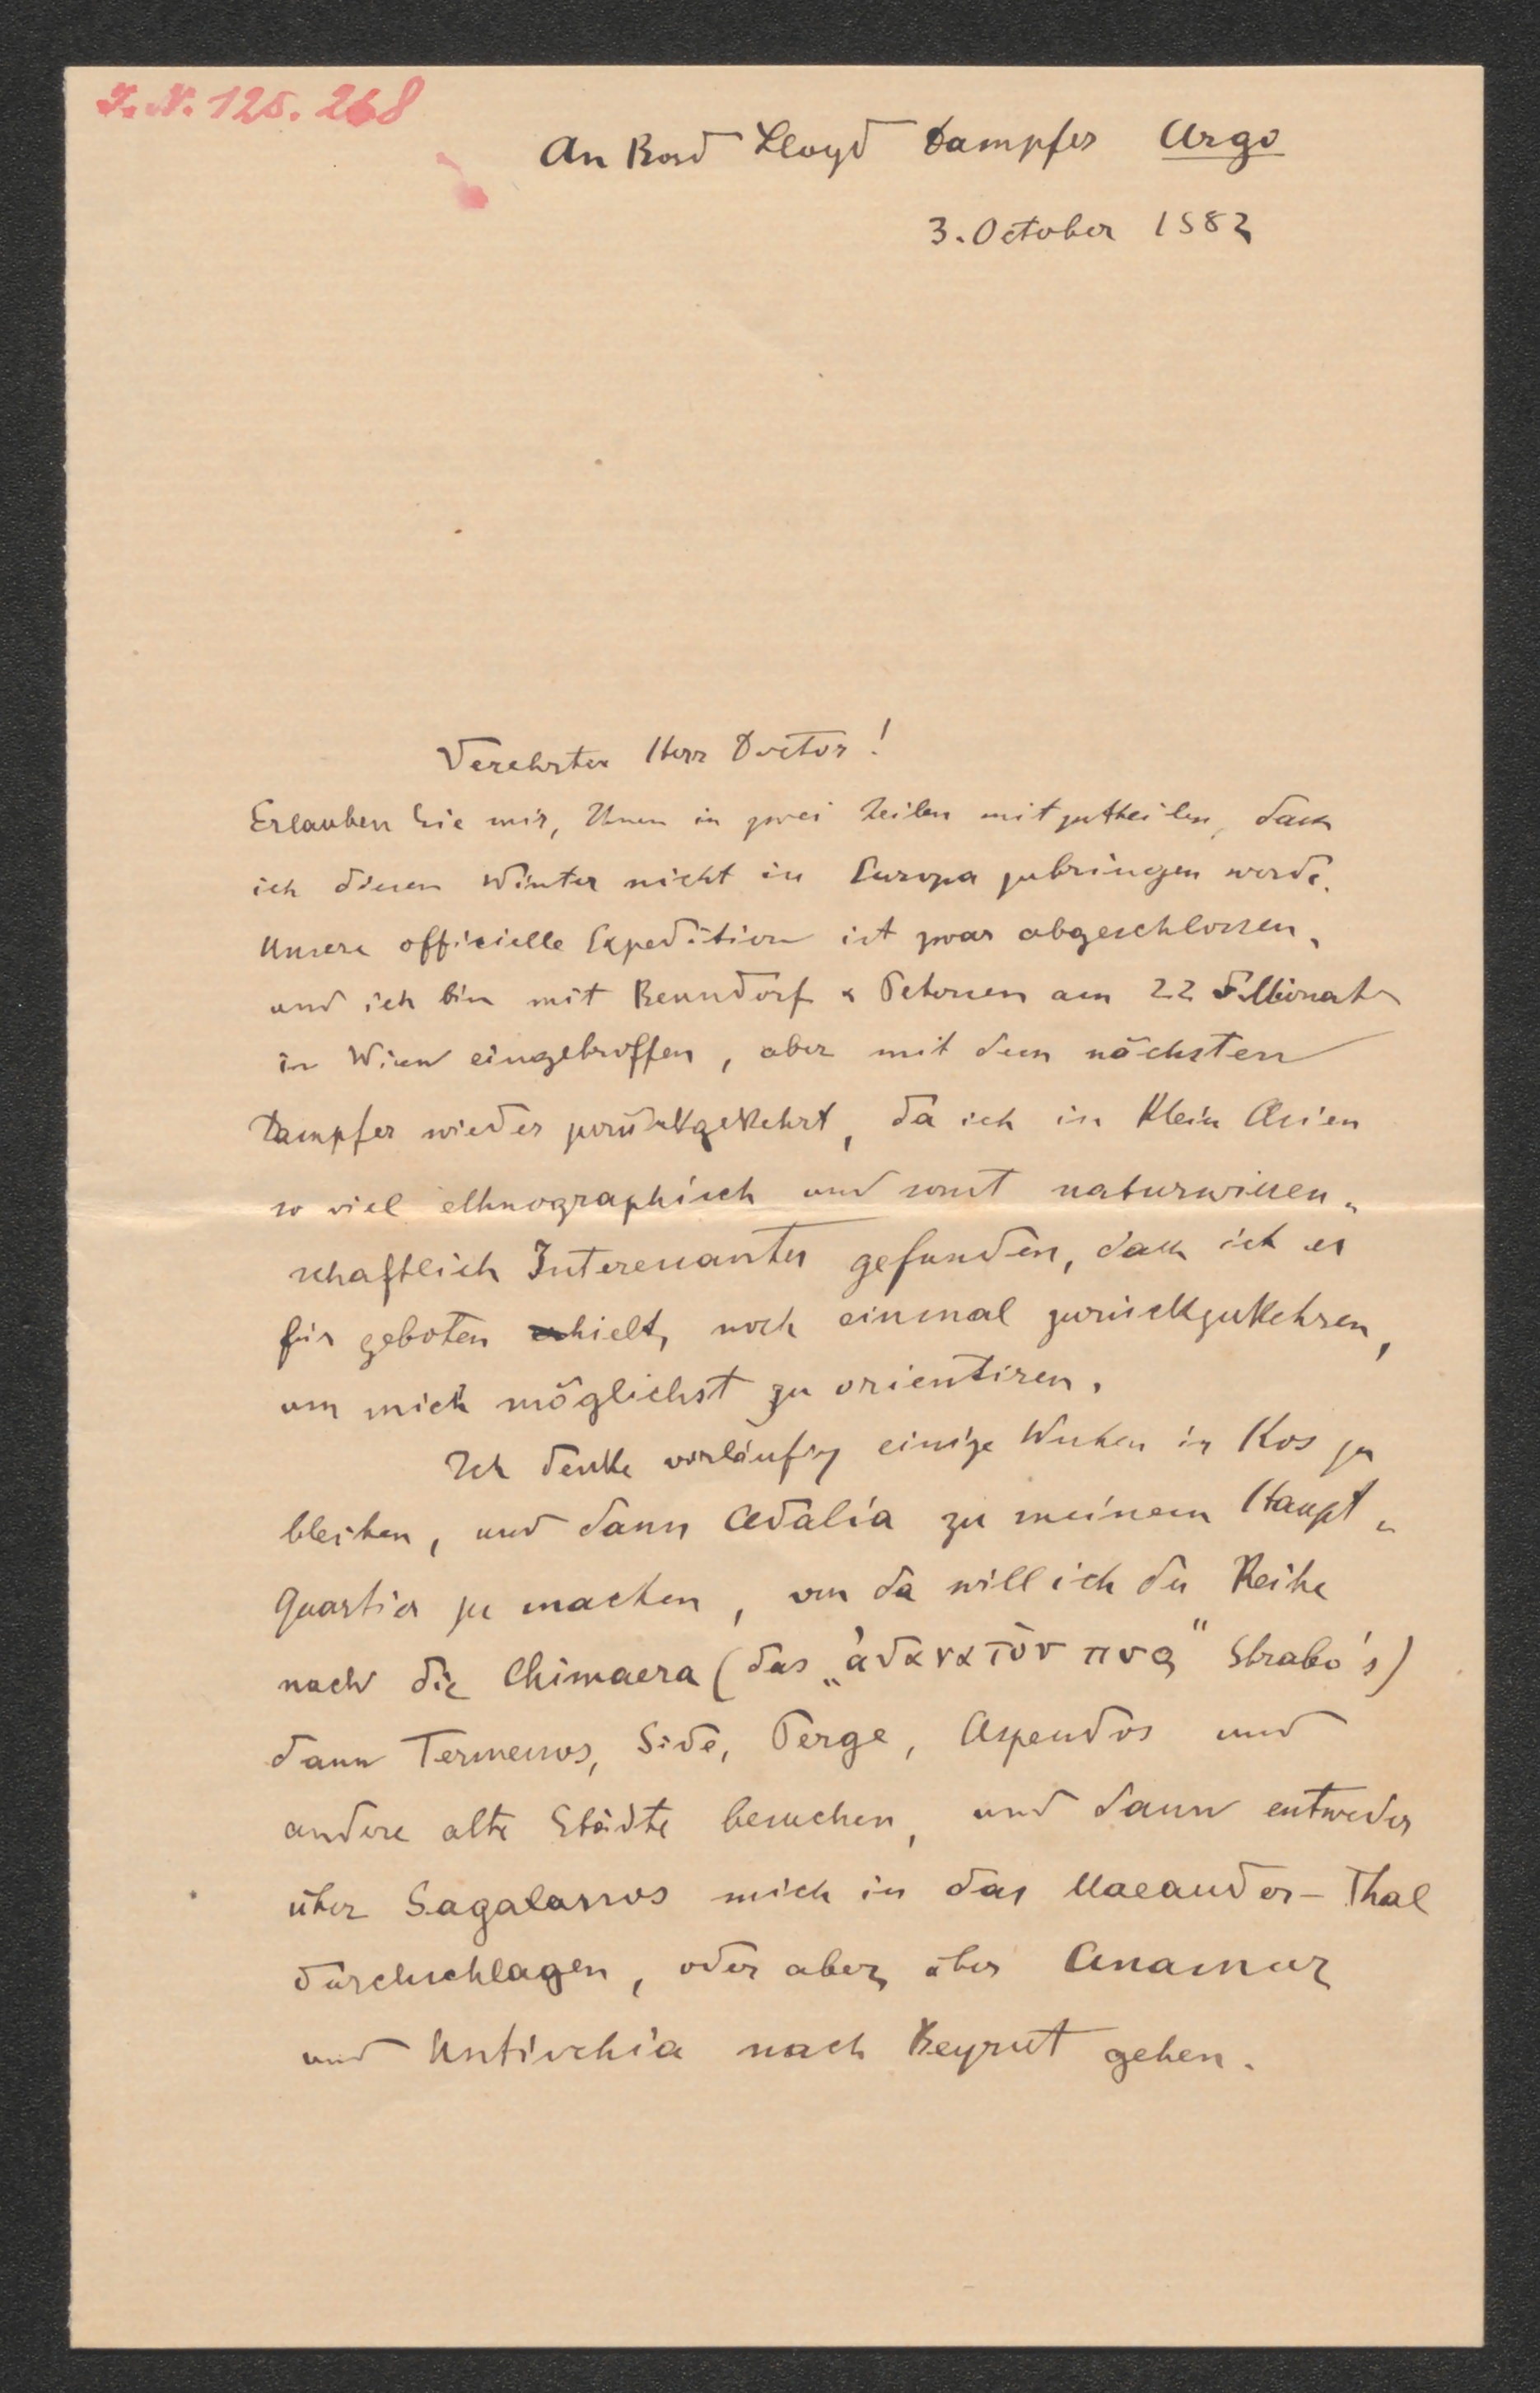 I. N. 125.268
An Bord Lloyd Dampfer Argo
3. October 1882
Verehrter Herr Doctor!
Erlauben Sie mir, Ihnen in zwei Zeilen mitzutheilen, dass
ich diesen Winter nicht in Europa zubringen werde.
Unsere officielle Expedition ist zwar abgeschlossen,
und ich bin mit Benndorf & Petersen am 22 d. Monats
in Wien eingetroffen, aber mit dem nächsten
Dampfer wieder zurückgekehrt, da ich in Klein Asien
so viel ethnographisch und sonst naturwissen„
schaftlich Interessantes gefunden, dass ich es
für geboten hielt, noch einmal zurückzukehren,
um mich möglichst zu orientiren.
Ich denke vorläufig einige Wochen in Kos zu
bleiben, und dann Adalia zu meinem Haupt„
Quartier zu machen, von da will ich der Reihe
nach die Chimaera (das „ἀθανατὸν πυρ" Strabo's)
dann Termessos, Side, Perge, Aspendos und
andere alte Städte besuchen, und dann entweder
über Sagalassos mich in das Maeander-Thal
durchschlagen, oder aber über Anamur
und Antiochia nach Beyrut gehen.